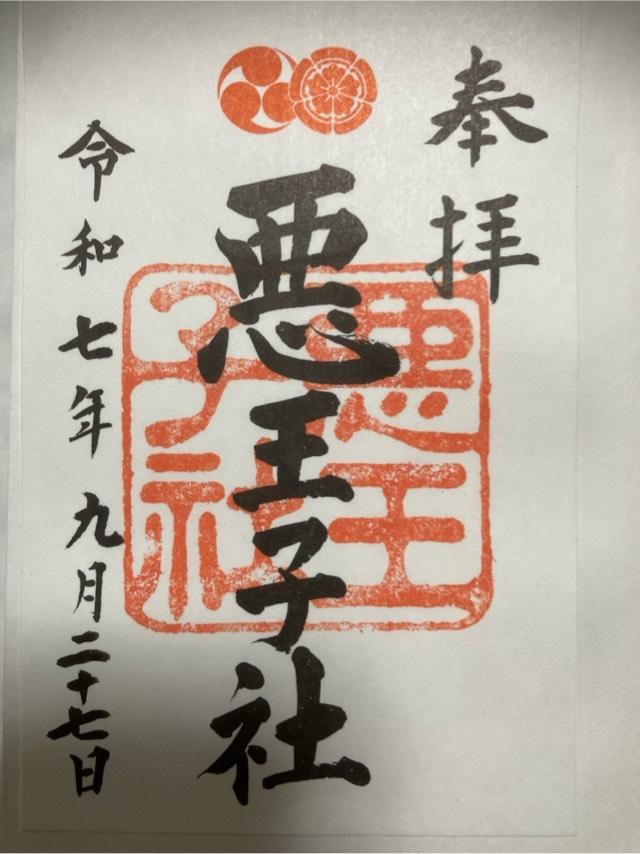 奉拝
悪王子社
悪王子社
令和七年九月二十七日